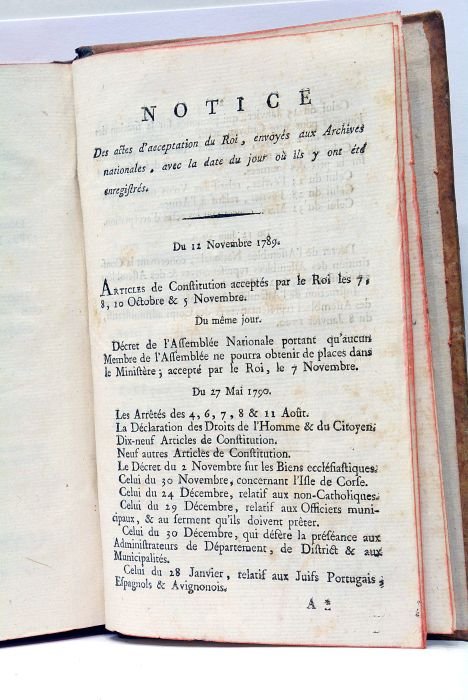 NOTICE
Des actes d'acceptation du Roi, envoyés aux Archives
nationales, avec la date du jour où ils y ont été
enregistrés.
Du 12 Novembre 1789.
ARTICLES de Constitution acceptés par le Roi les 7,
8, 10 Octobre & 5 Novembre.
Du même jour.
Décret de l'Assemblée Nationale portant qu'aucun
Membre de l'Assemblée ne pourra obtenir de places dans
le Ministère; accepté par le Roi, le 7 Novembre.
Du 27 Mai 1790.
Les Arrêtés des 4, 6, 7, 8 & 11 Août.
La Déclaration des Droits de l'Homme & du Citoyen.
Dix-neuf Articles de Constitution.
Neuf autres Articles de Constitution.
Le Décret du 2 Novembre sur les Biens ecclésiastiques.
Celui du 30 Novembre, concernant l'Isle de Corse.
Celui du 24 Décembre, relatif aux non-Catholiques.
Celui du 29 Décembre, relatif aux Officiers muni-
cipaux, & au serment qu'ils doivent prêter.
Celui du 30 Décembre, qui défère la préséance aux
Administrateurs de Département, de District & aux
Municipalités.
Celui du 28 Janvier, relatif aux Juifs Portugais,
Espagnols & Avignonois.
A